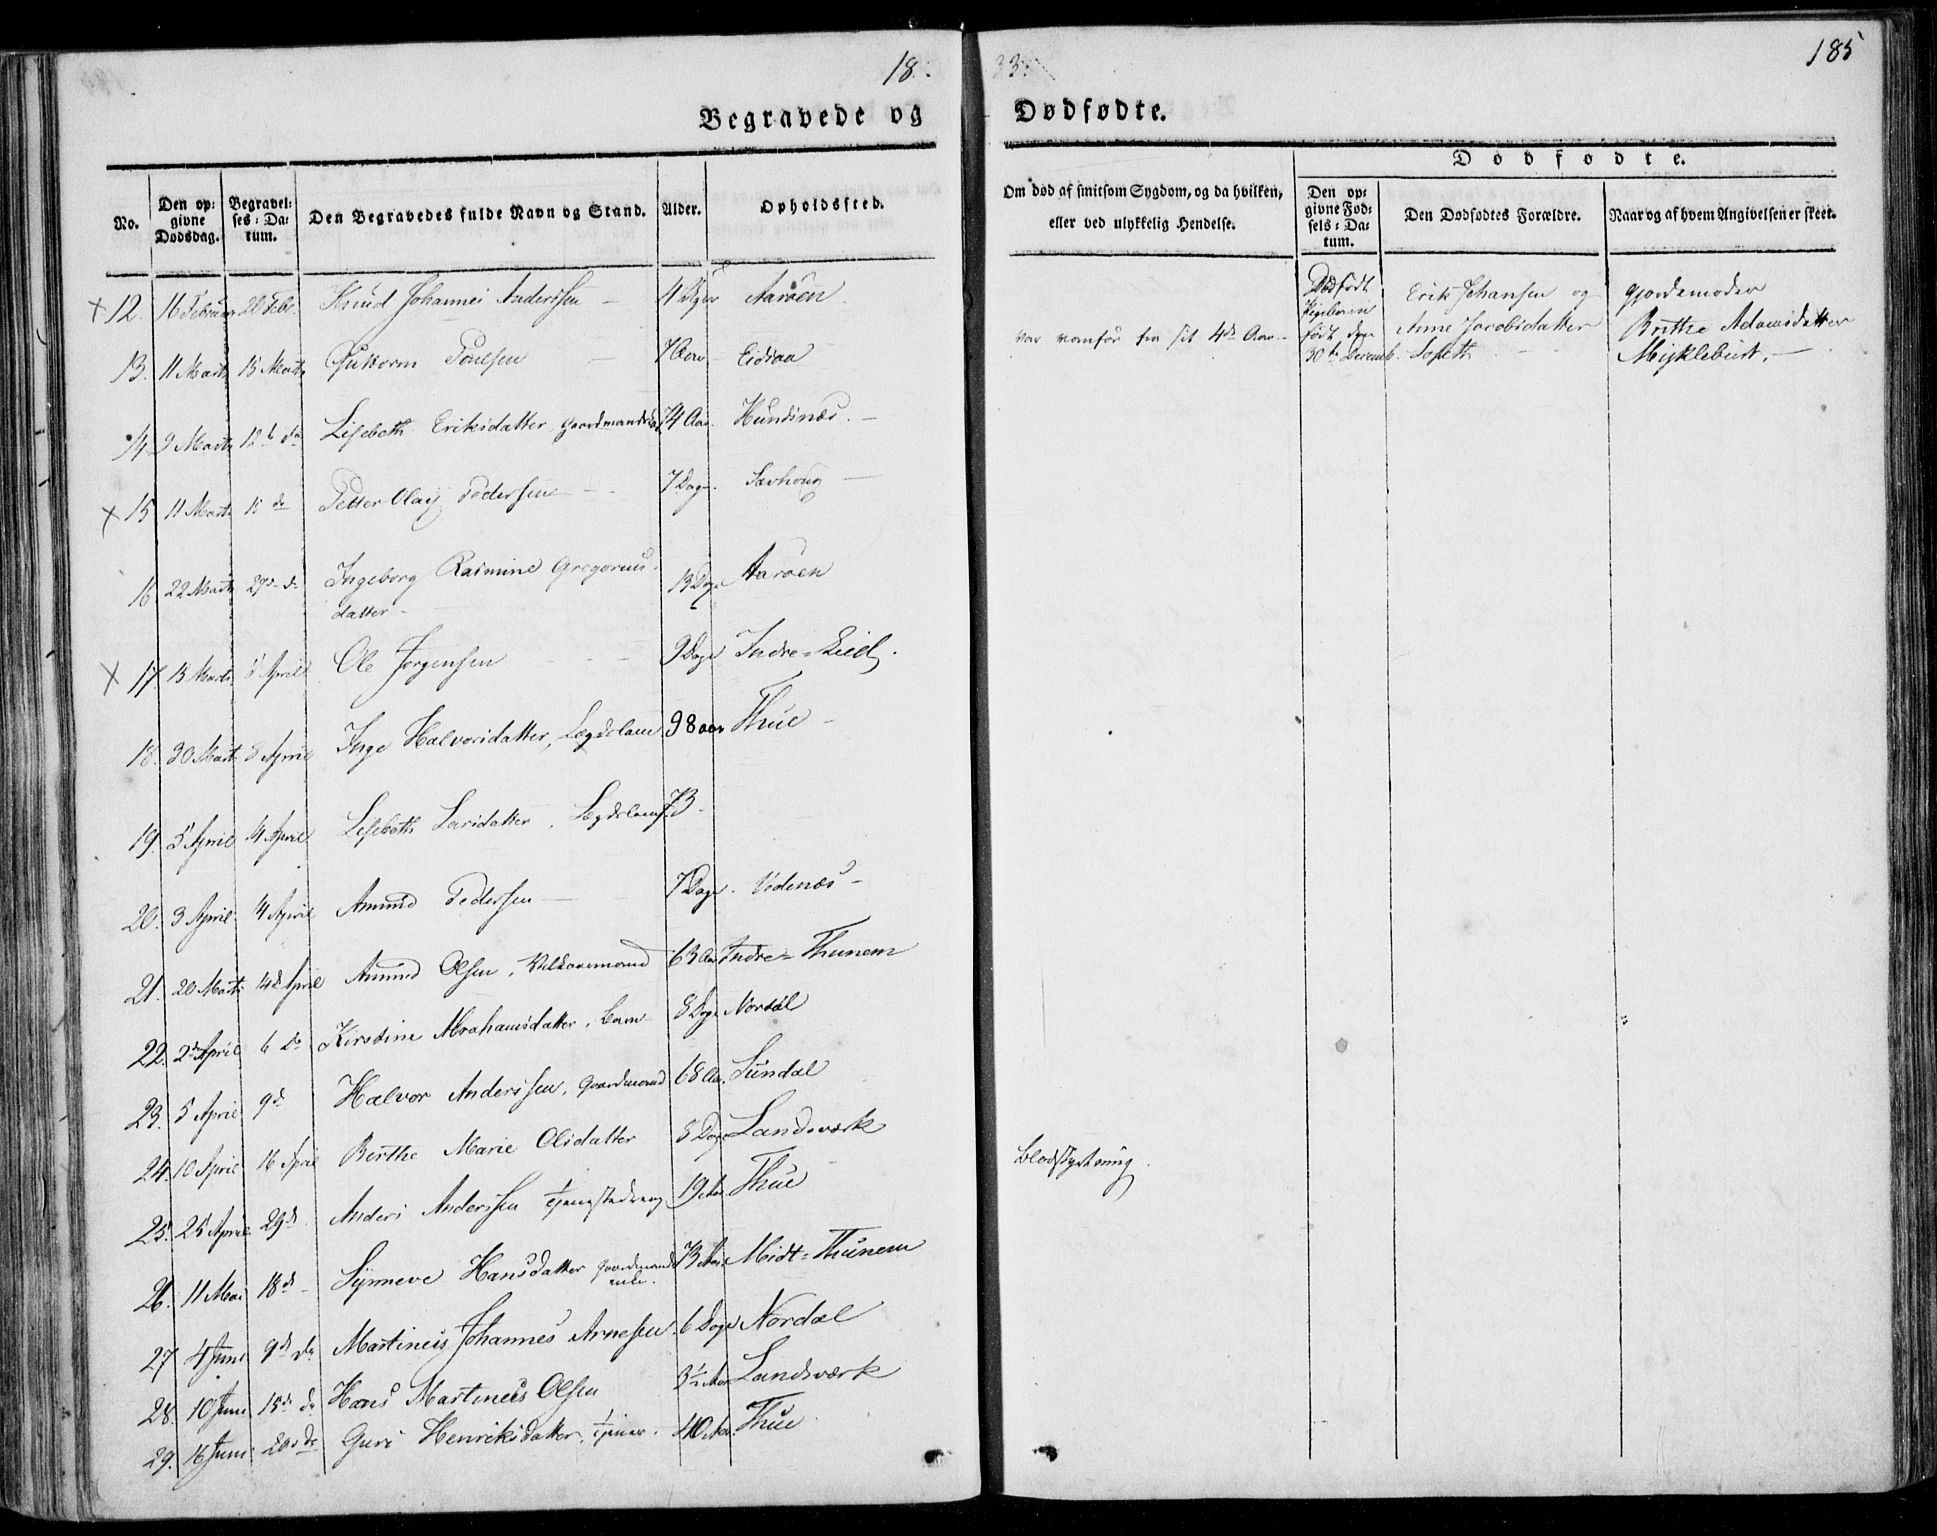 18
33
185
Begravede og Dødfødte.
No.
Den opgivne Dødsdag.
Begravelses-Datum.
Den Begravedes fulde Navn og Stand.
Alder.
Opholdssted.
Om død af smitsom Sygdom, og da hvilken, eller ved ulykkelig Hendelse.
Dødfødte.
Den opgivne Fødsels-Datum.
Den Dødfødtes Forældre.
Naar og af hvem Angivelsen er skeet.
+ 12. 16 Februar 20 Febr. Knud Johannes Anderssen 4 Aarøen
13. 11 Marts 15 Marts Guttorm Poulsen 7 Aar Eidsaa
var vanfør fra sit 4de Aar
Dødfødt Pigebarn født den 30te Decemb.
Erik Johansen og Anne Jacobsdatter
Gjordemoder Brithe Adamsdatter Myklebust.
14. 9 Marts 12te do Lisebeth Eriksdatter 74 Aar. Hundsnæs.
+ 15. 11 Marts 15 do Petter Olaj Pedersen 7 Dage.
16 22 Marts 29de do Ingeborg Rasmine Gregorius-
datter 13 Dage Aarøen
+ 17. 13 Marts 5 April Ole Jørgensen 9 Dage Indre-Eid.
18. 30 Marts 8 April Inge Halvorsdatter, Lægdslem 98 aar Thue
19. 5 April 14 April Lisebeth Larsdatter, Lægdslem 73
20. 3 April 14 April Amund Pedersen 7 Dage. Vedenæs
21. 20 Marts 14de April Amund Olsen, Vilkaarsmand 63 Aar Indre-Thunem
22. 2de April 6 do Kirstine Abrahamsdatter, barn 8 Dage Nordal
23. 5 April 9de Halvor Anderssen, Gaardmand 68 Aar. Sundal
24. 10 April 16 April Berthe Marie Olsdatter 8 Dage Landsværk
25. 25 April 29de Anders Anderssen Tjenestedreng 19 Aar Thue
Blodstyrtning.
26. 11 Mai 18de Synneve Hansdatter Gaardmands
enke. 73 Aar Midt-Thunem
27 4 Juni 9de do Martinus Johannes Arnesen 6 Dage Nordal
28. 10 Juni 15de do Hans Martinus Olsen 3½ Aar Landsværk
29. 16 Juni 20de do Guri Henriksdatter, 40 Aar. Thue